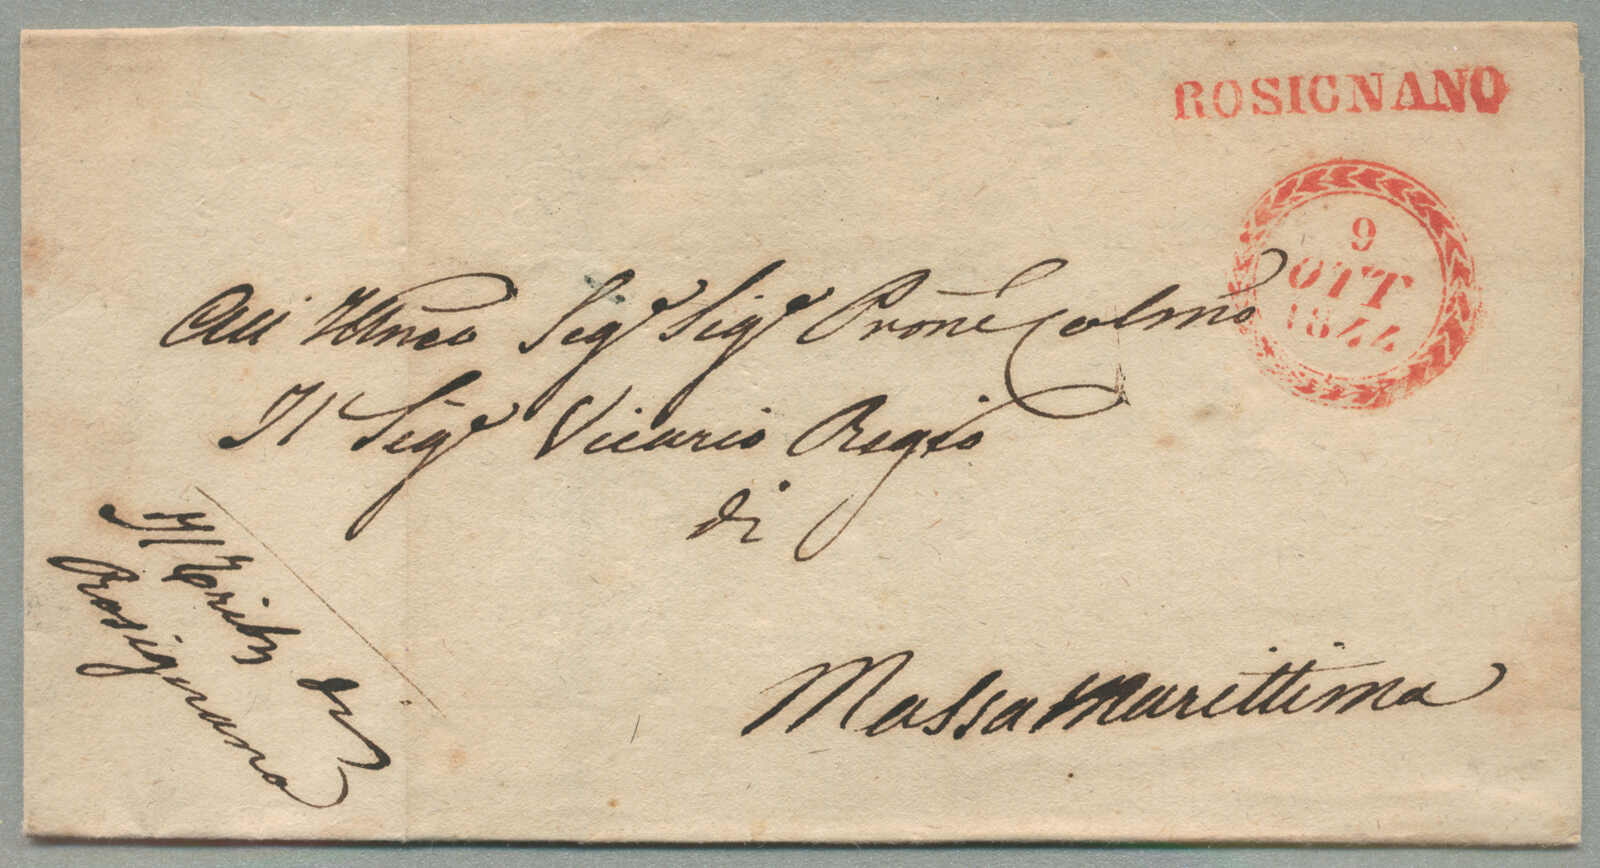 ROSIGNANO
9
OTT
1844
Sigre Sigre Prone Colmo
Il Sigre Vicario Regio
di
Massa Marittima
Il Trible di
Rosignano